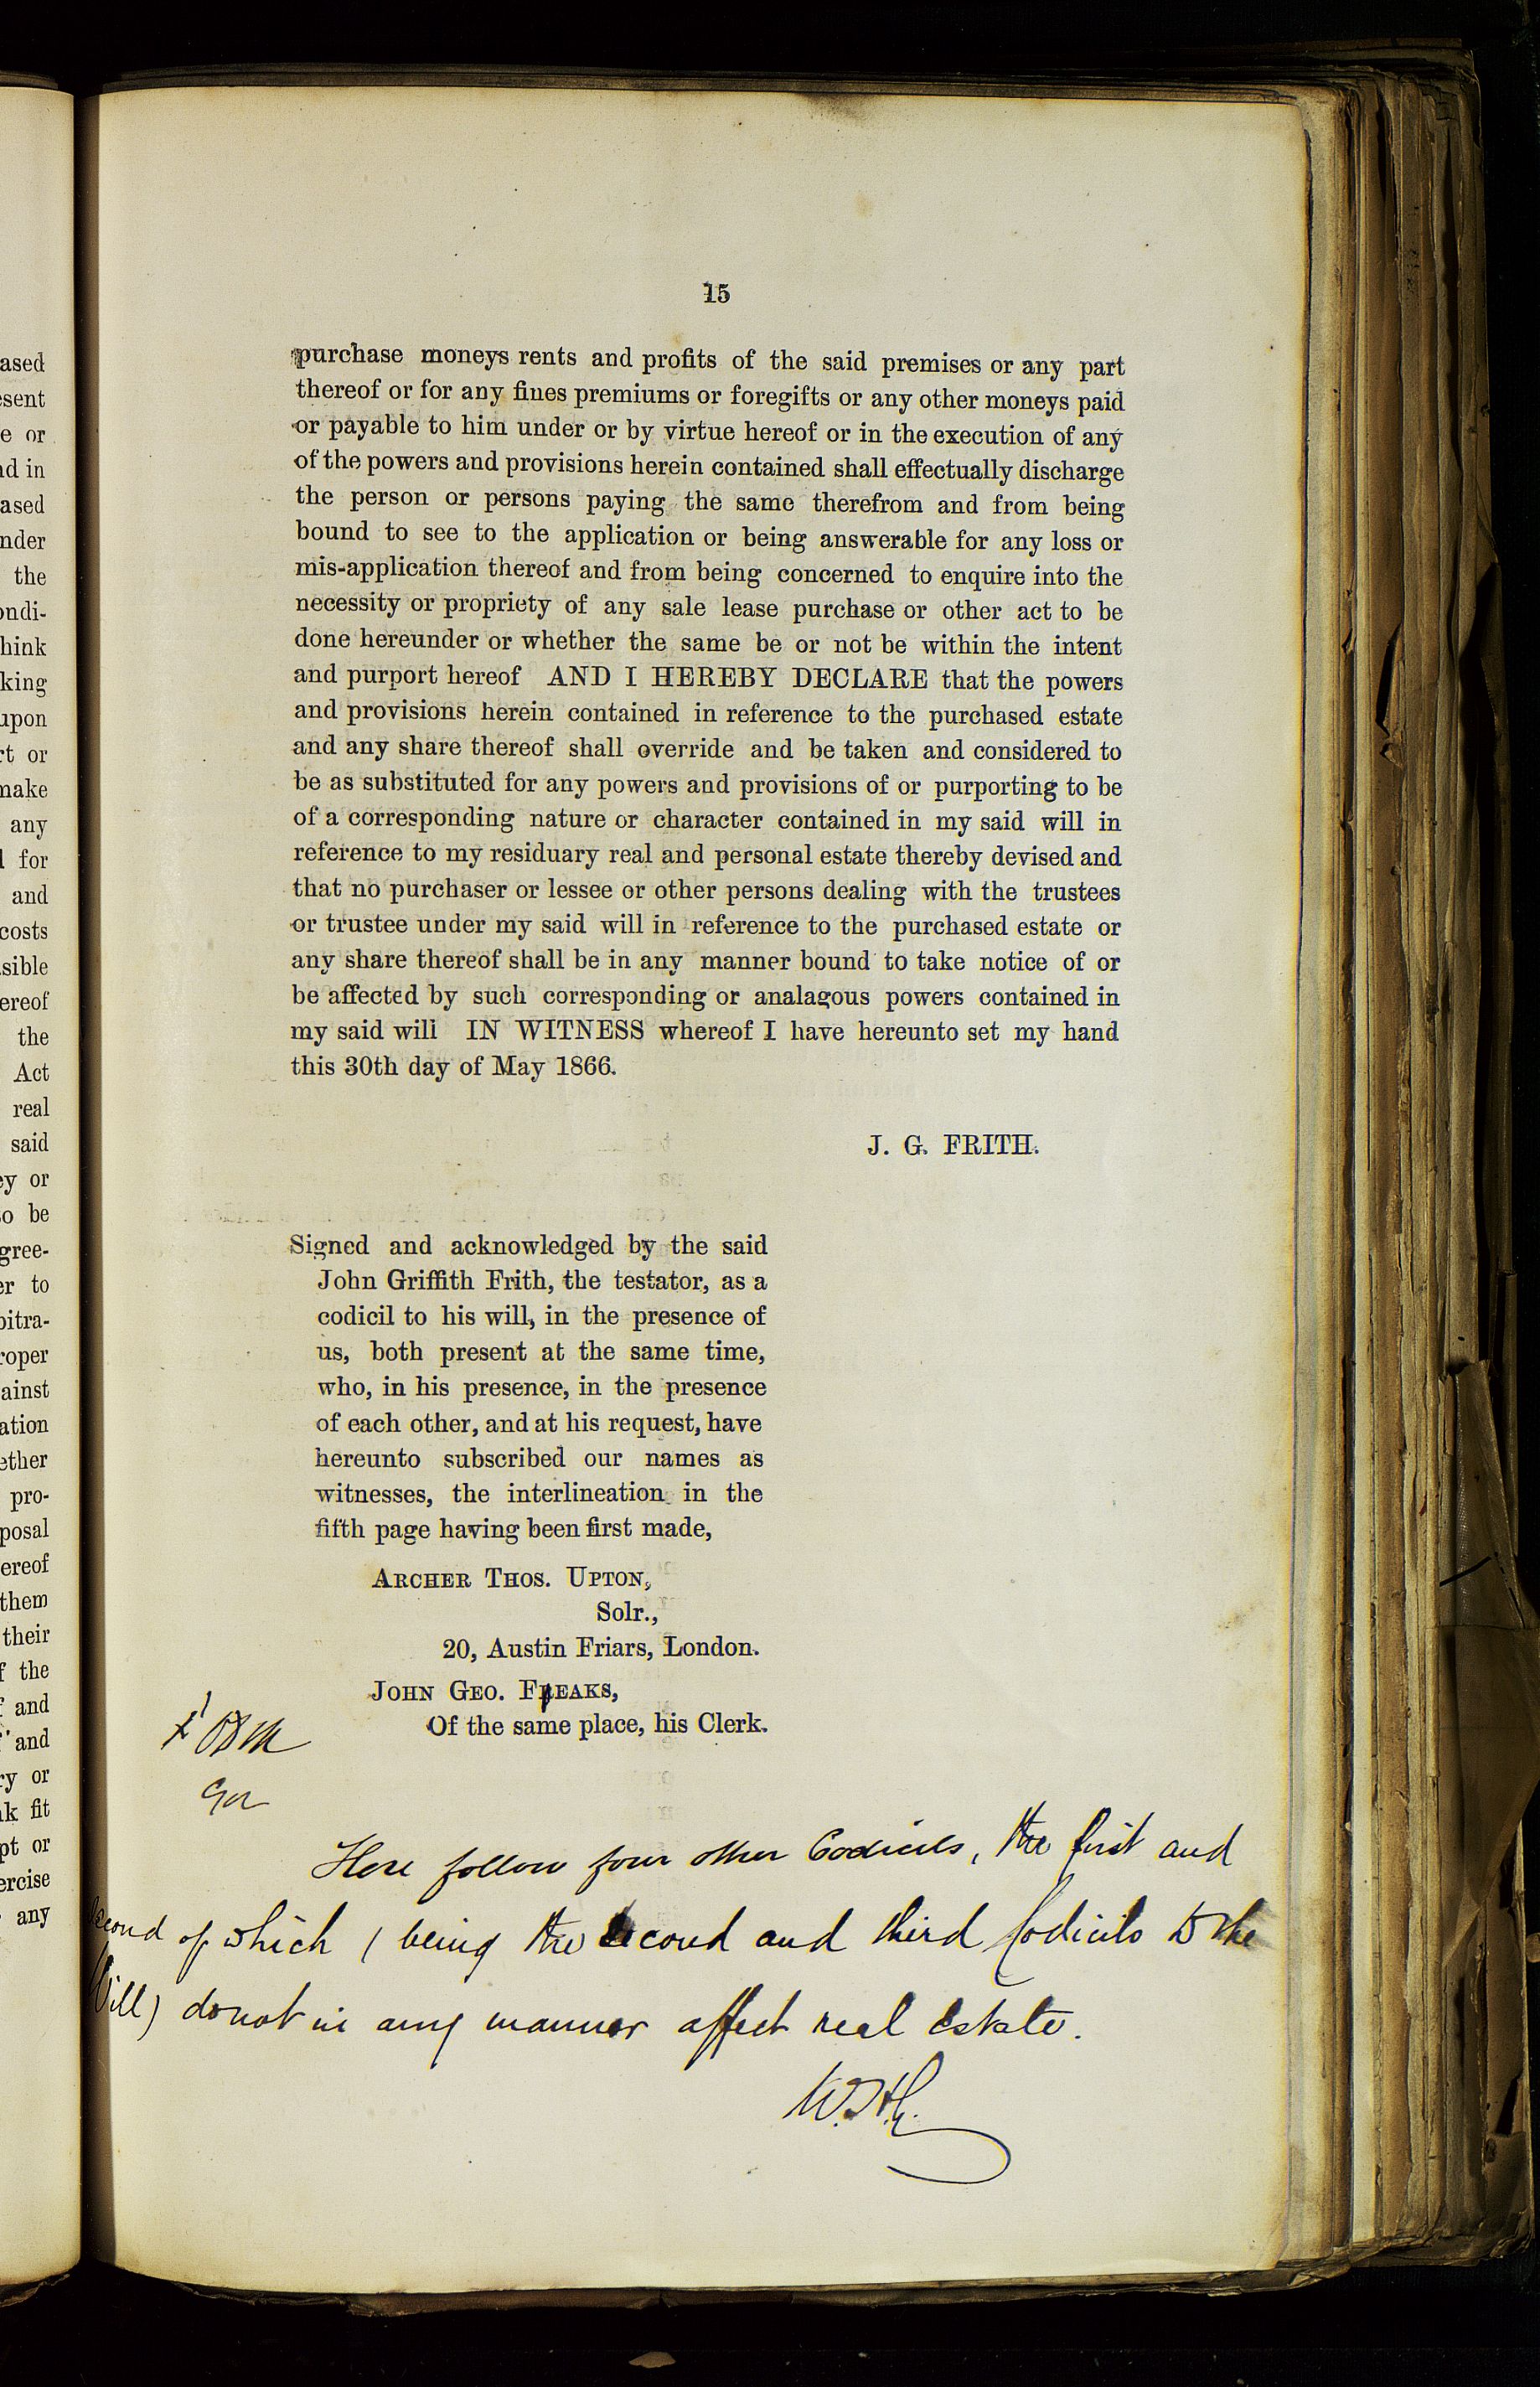 ased
esent
e or
nd in
ased
nder
the
ondi-
hink
king
upon
rt or
make
any
l for
and
costs
sible
ereof
the
Act
real
said
ey or
to be
gree-
er to
bitra-
roper
ainst
ation
ether
pro-
posal
ereof
them
their
f the
f and
and
ry or
nk fit
pt or
ercise
any
15
purchase moneys rents and profits of the said premises or any part
thereof or for any fines premiums or foregifts or any other moneys paid
or payable to him under or by virtue hereof or in the execution of any
of the powers and provisions herein contained shall effectually discharge
the person or persons paying the same therefrom and from being
bound to see to the application or being answerable for any loss or
mis-application thereof and from being concerned to enquire into the
necessity or propriety of any sale lease purchase or other act to be
done hereunder or whether the same be or not be within the intent
and purport hereof AND I HEREBY DECLARE that the powers
and provisions herein contained in reference to the purchased estate
and any share thereof shall override and be taken and considered to
be as substituted for any powers and provisions of or purporting to be
of a corresponding nature or character contained in my said will in
reference to my residuary real and personal estate thereby devised and
that no purchaser or lessee or other persons dealing with the trustees
or trustee under my said will in reference to the purchased estate or
any share thereof shall be in any manner bound to take notice of or
be affected by such corresponding or analagous powers contained in
my said will IN WITNESS whereof I have hereunto set my hand
this 30th day of May 1866.
J. G. FRITH.
Signed and acknowledged by the said
John Griffith Frith, the testator, as a
codicil to his will, in the presence of
us, both present at the same time,
who, in his presence, in the presence
of each other, and at his request, have
hereunto subscribed our names as
witnesses, the interlineation in the
fifth page having been first made,
ARCHER THOS. UPTON,
Solr.,
20, Austin Friars, London.
JOHN GEO. FREAKS,
Of the same place, his Clerk.
Here follow four other Codicils, the first and
second of which (being the second and third Codicils to the
Will) do not in any manner affect real Estate.